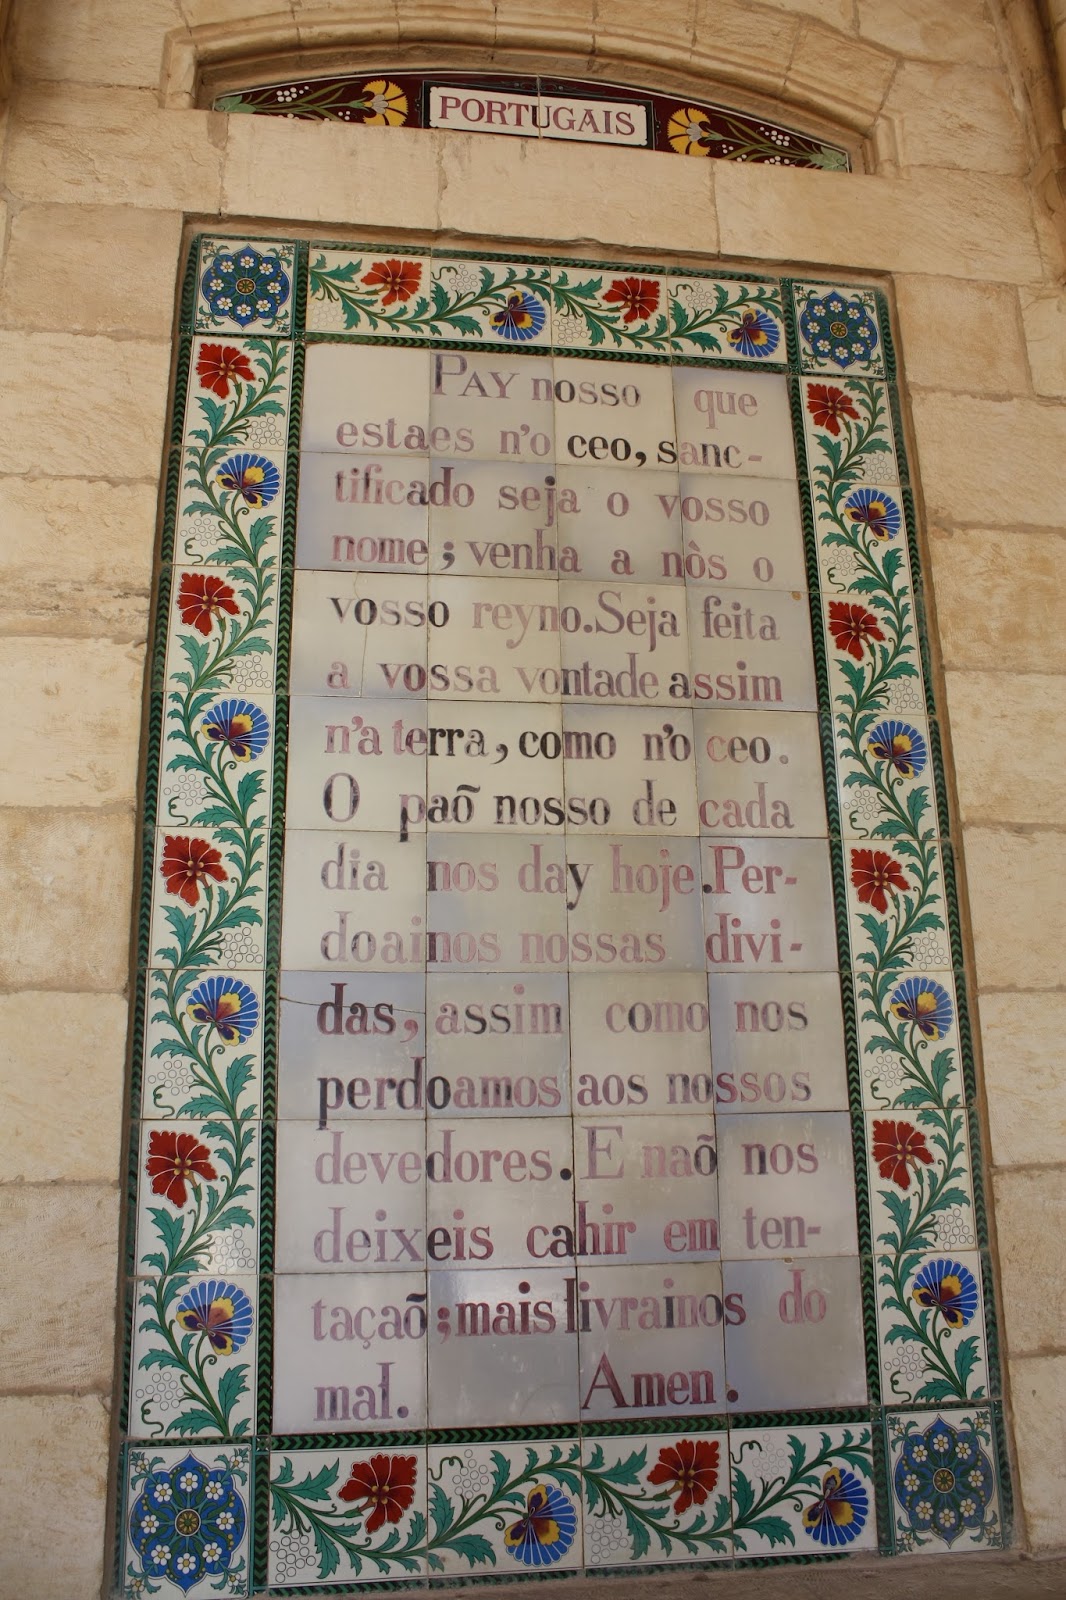 PORTUGAIS
PAY nosso que
estaes n'o ceo, sanc-
tificado seja o vosso
nome; venha a nòs o
vosso reyno. Seja feita
a vossa vontade assim
n'a terra, como n'o ceo.
O paõ nosso de cada
dia nos day hoje. Per-
doainos nossas divi-
das, assim como nos
perdoamos aos nossos
devedores. E naõ nos
deixeis cahir em ten-
taçaõ; mais livrainos do
mal. Amen.